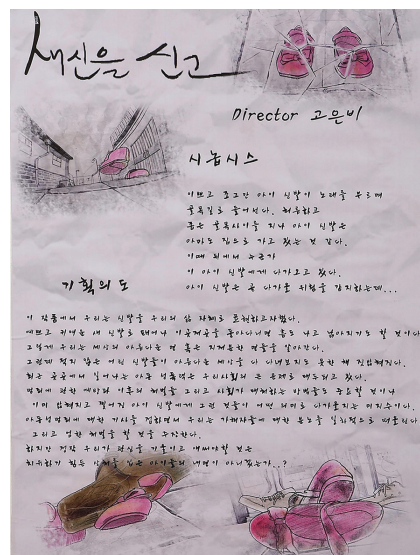 새신을 신고
Director 고은비
시놉시스
이쁘고 조그만 아이 신발이 노래를 부르며
골목길로 들어선다. 허름하고
좁은 골목사이를 지나 아이 신발은
아마도 집으로 가고 있는 것 같다.
이때 뒤에서 누군가
이 아이 신발에게 다가오고 있다.
아이 신발은 곧 다가올 위험을 감지하는데...
기획의도
이 작품에서 우리는 신발을 우리의 삶 자체로 표현하고자했다.
예쁘고 귀여운 새 신발로 태어나 이곳저곳을 돌아다니면 흠도 나고 넘어지기도 할 것이다
그렇게 우리는 세상의 아름다운 면 혹은 지저분한 면들을 알아간다.
그런데 적지 않은 어린 신발이 아름다운 세상을 다 내딛어보지도 못한 채 짓밟혀진다.
최근 곳곳에서 일어나는 아동 성폭력은 우리사회의 큰 문제로 대두되고 있다.
범죄에 관한 예방와 이후의 처벌들 그리고 사회가 대처하는 방법들도 중요할 것이나
이미 밟혀지고 찢어진 아이 신발에게 그런 것들이 어떤 의미로 다가올지는 미지수이다.
아동성범죄에 대한 기사를 접하면서 우리는 가해자들에 대한 분노를 일차적으로 떠올린다
그리고 엄한 처벌을 할 것을 주장한다.
하지만 정작 우리가 관심을 기울이고 애써야할 것은
치유하기 힘든 상처를 입은 아이들의 내면이 아니겠는가..?